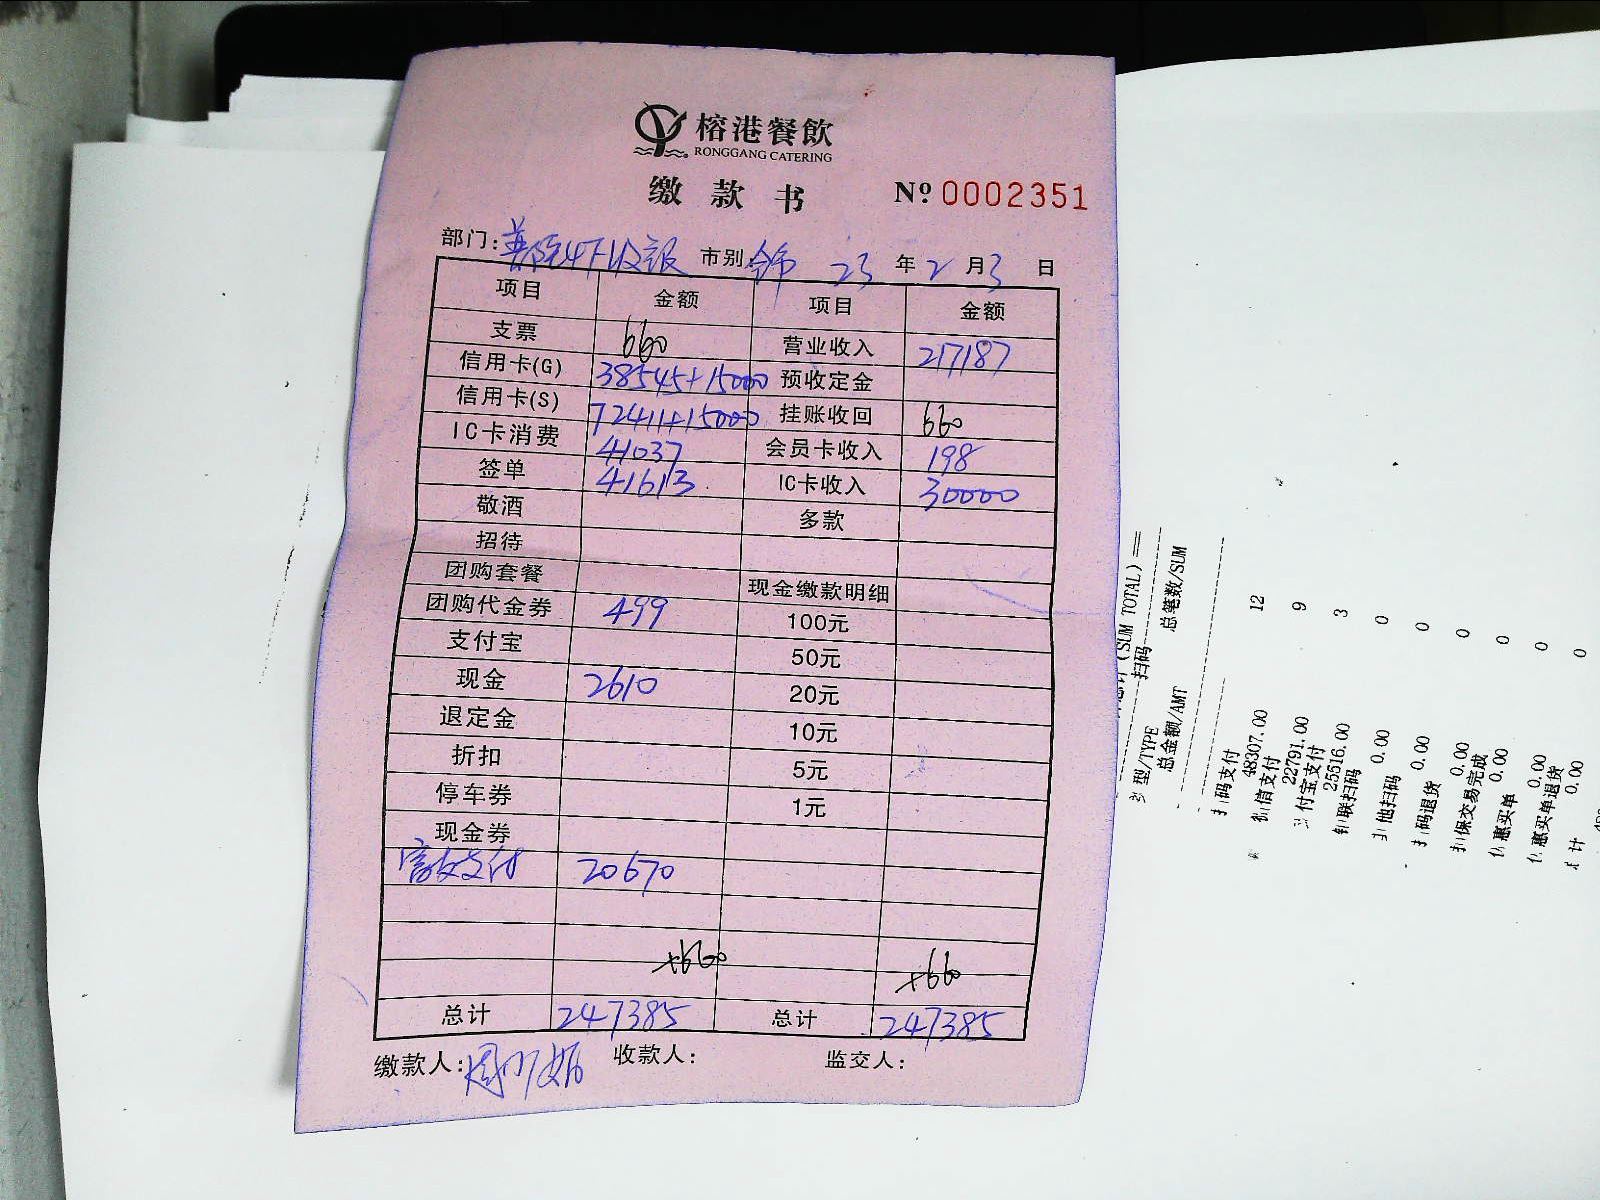 榕港餐飲
RONGGANG CATERING
缴款书 Nº 0002351
部门: 市别 23 年 2 月 3 日
项目 金额 项目 金额
支票 660 营业收入 217187
信用卡(G) 38545+15000 预收定金
信用卡(S) 72411+15000 挂账收回 660
IC卡消费 41037 会员卡收入 198
签单 41613 IC卡收入 30000
敬酒 多款
招待
团购套餐 现金缴款明细
团购代金券 499 100元
支付宝 50元
现金 2610 20元
退定金 10元
折扣 5元
停车券 1元
现金券
支付 20670
+660 +660
总计 247385 总计 247385
缴款人: 周 收款人: 监交人:
(SUM TOTAL) ==
型/TYPE 扫码
总金额/AMT 总笔数/SUM
码支付
48307.00 12
信支付
22791.00 9
付宝支付
25516.00 3
联扫码
0.00 0
他扫码
0.00 0
码退货
0.00 0
保交易完成
0.00 0
惠买单
0.00 0
惠买单退货
0.00 0
计